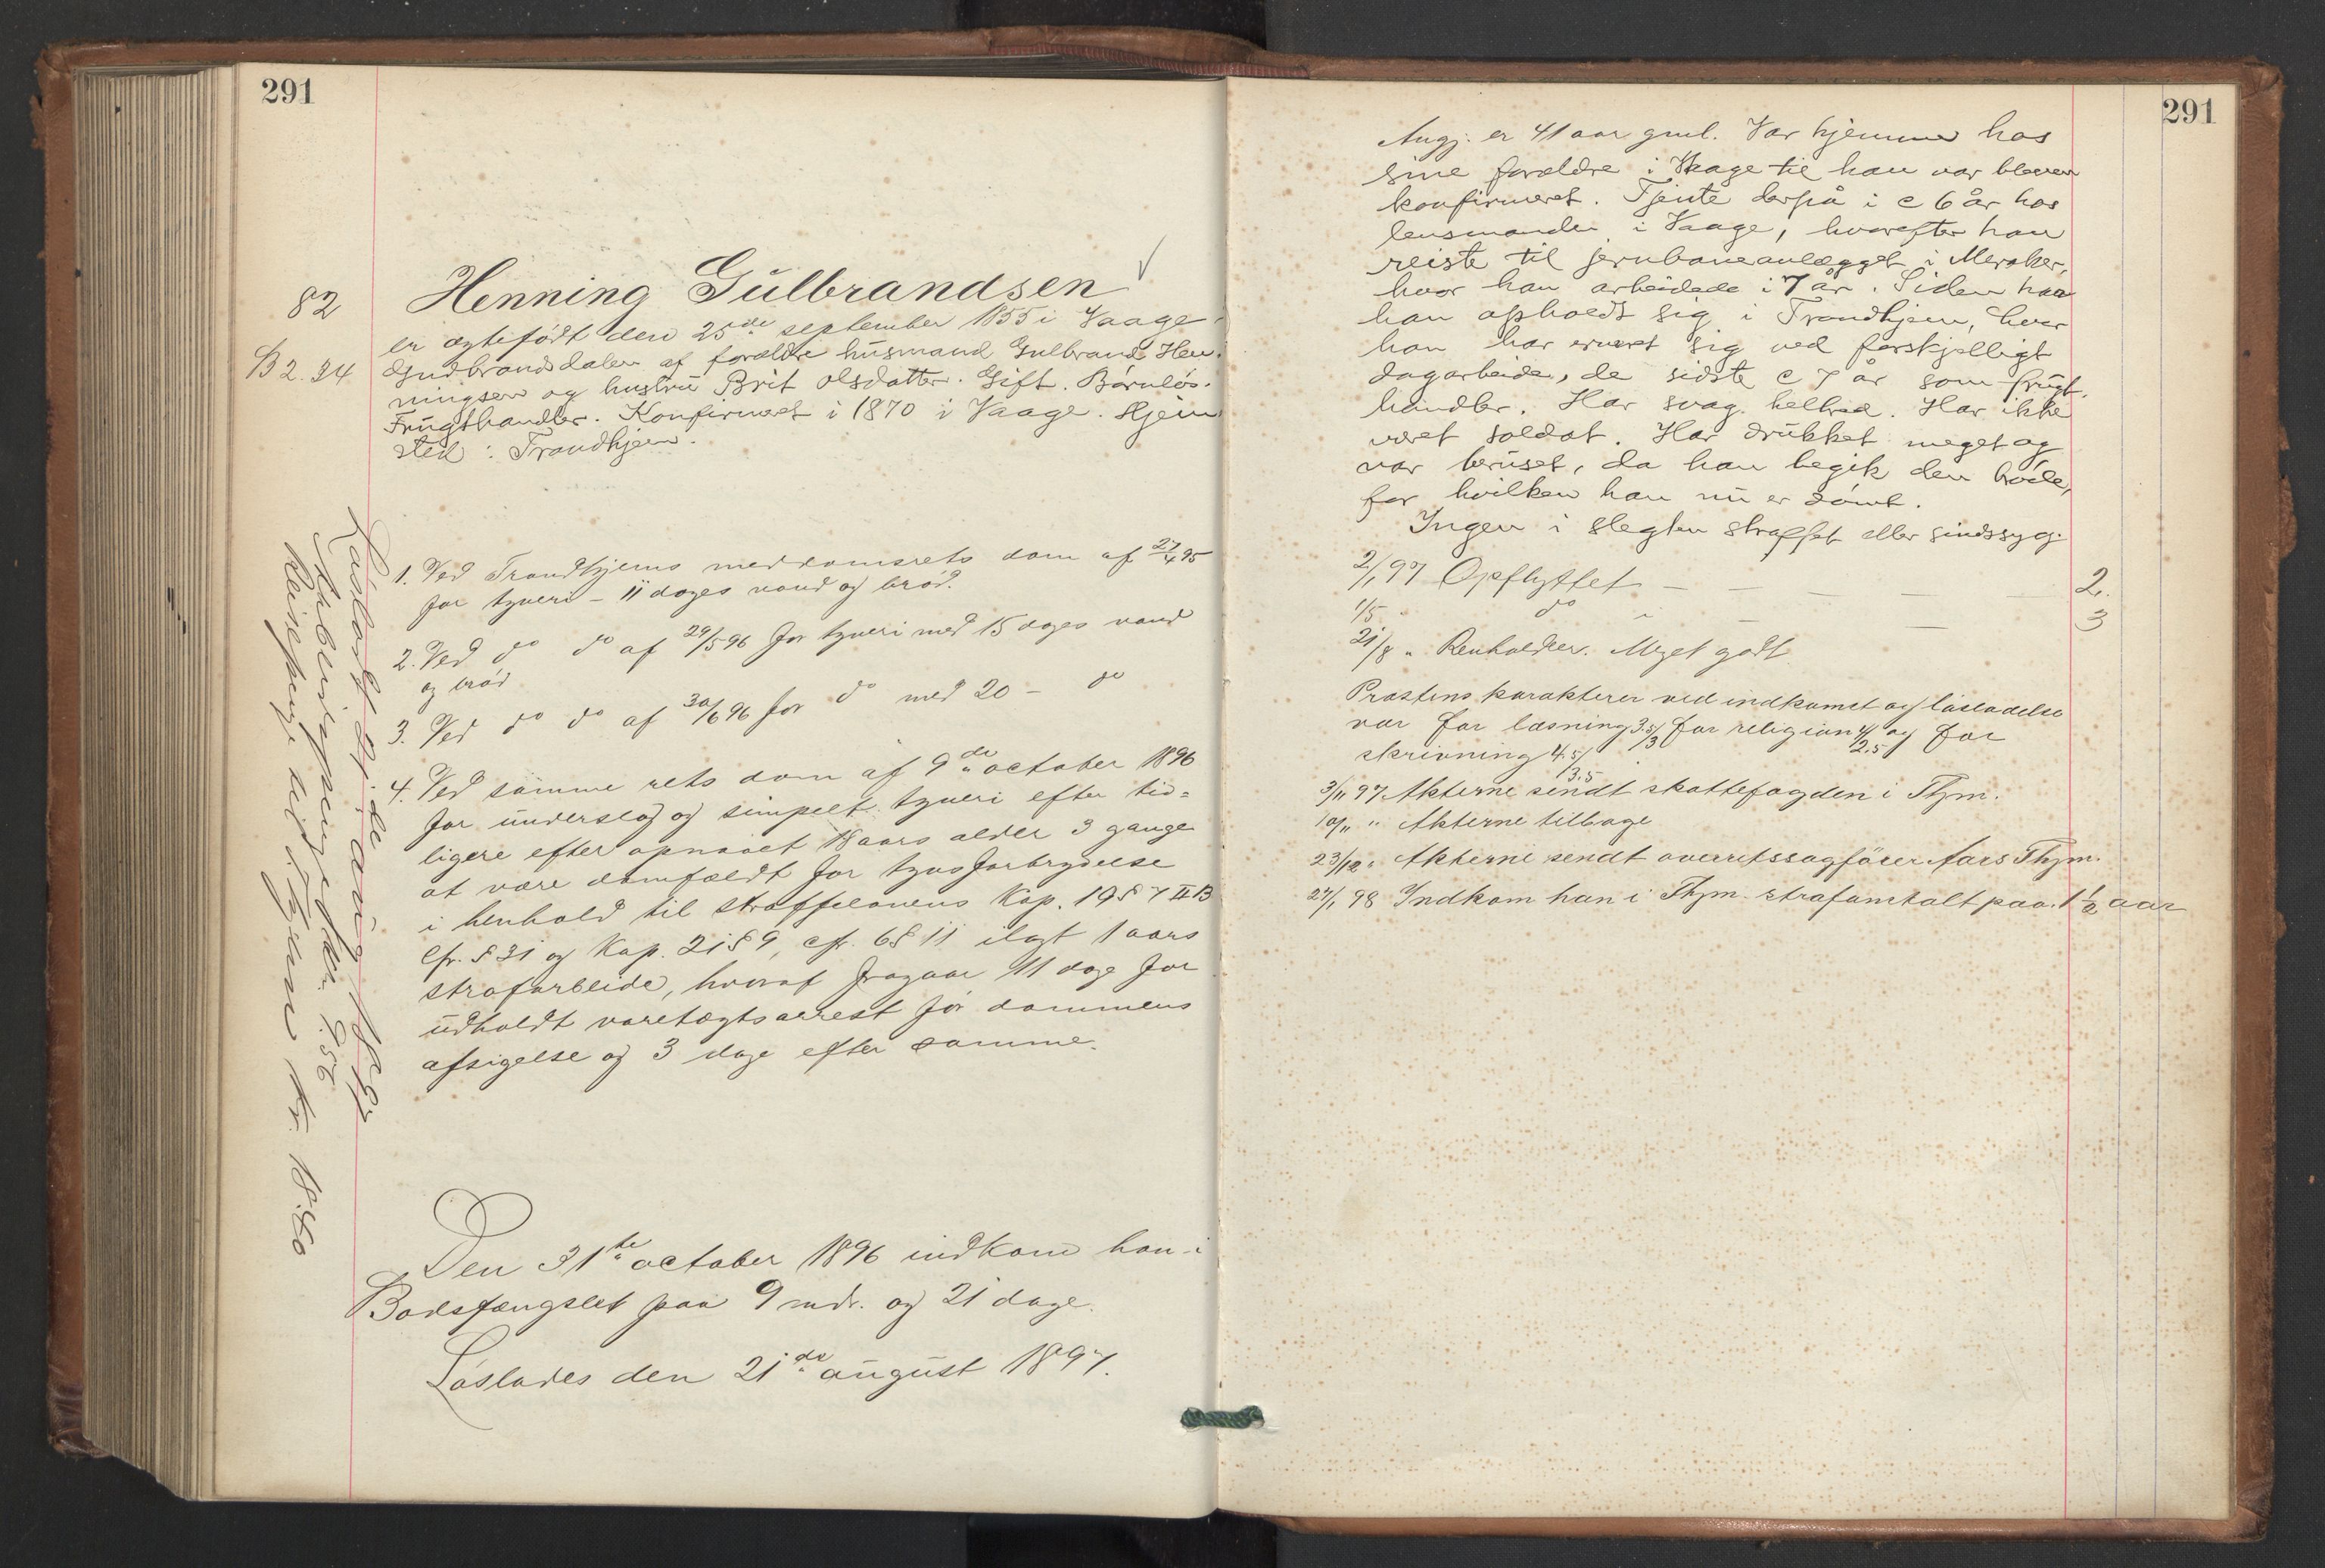 291
82
B 2. 34
Henning Gulbrandsen
er ægtefødt den 25de september 1855 i Vaage
Gudbrandsdalen af forældre husmand Gulbrand Hen-
ningsen og hustru Brit Olsdatter. Gift. Barnløs.
Frugthandler. Konfirmeret i 1870 i Vaage. Hjem
sted: Trondhjem.
1. Ved Trondhjems meddomsrets dom af 27/4 95
for tyveri - 11 dages vand og brød.
2. Ved do do af 29/5 96 for tyveri med 15 dages vand
og brød
3. Ved do do af 30/6 96 for do med 20 - do
4. Ved samme rets dom af 9de october 1896
for underslag og simpelt tyveri efter tid-
ligere efter opnaaet 18 aars alder 3 gange
at være domfældt for tyvsforbrydelse
i henhold til straffelovens Kap. 19 § 7 II B
cfr. § 31 og Kap. 21 § 9, cfr. 6 § 11 ilagt 1 aars
strafarbeide, hvoraf fragaar 11 dage for
udholdt varetægtsarrest før dommens
afsigelse og 3 dage efter samme.
Den 31te october 1896 indkom han i
Bodsfængslet paa 9 mdr. og 21 dage.
Løslades den 21de august 1897.
Løsladt 21de aug 1897
Reisepenge kr. 18.60
291
Angj. er 41 aar gml. Var hjemme hos
sine forældre i Vaage til han var bleven
konfirmeret. Tjente derpå i c 6 år hos
lensmanden i Vaage, hvorefter han
reiste til jernbaneanlægget i Meraker,
hvor han arbeidede i 7 år. Siden har
han opholdt sig i Trondhjem, hvor
han har ernæret sig ved forskjelligt
dagarbeide, de sidste c 7 år som frugt-
handler. Har svag helbred. Har ikke
været soldat. Har drukket meget og
var beruset, da han begik den brøde,
for hvilken han nu er dømt.
Ingen i slegten straffet eller sindssyg.
2/1 97 Opflyttet - - - - 2.
1/5 " do " - 3
21/8 " Renholder. Meget godt
Prestens karakterer ved indkomst og løsladelse
var for læsning 3.5/3 for religion 4/2.5 og for
skrivning 4.5/3.5
3/11 97 Akterne sendt skattefogden i Thjm.
10/11 " Akterne tilbage
23/12 " Akterne sendt overretssagfører Aars Thjm.
27/1 98 Indkom han i Thjm. strafanstalt paa 1 1/2 aar